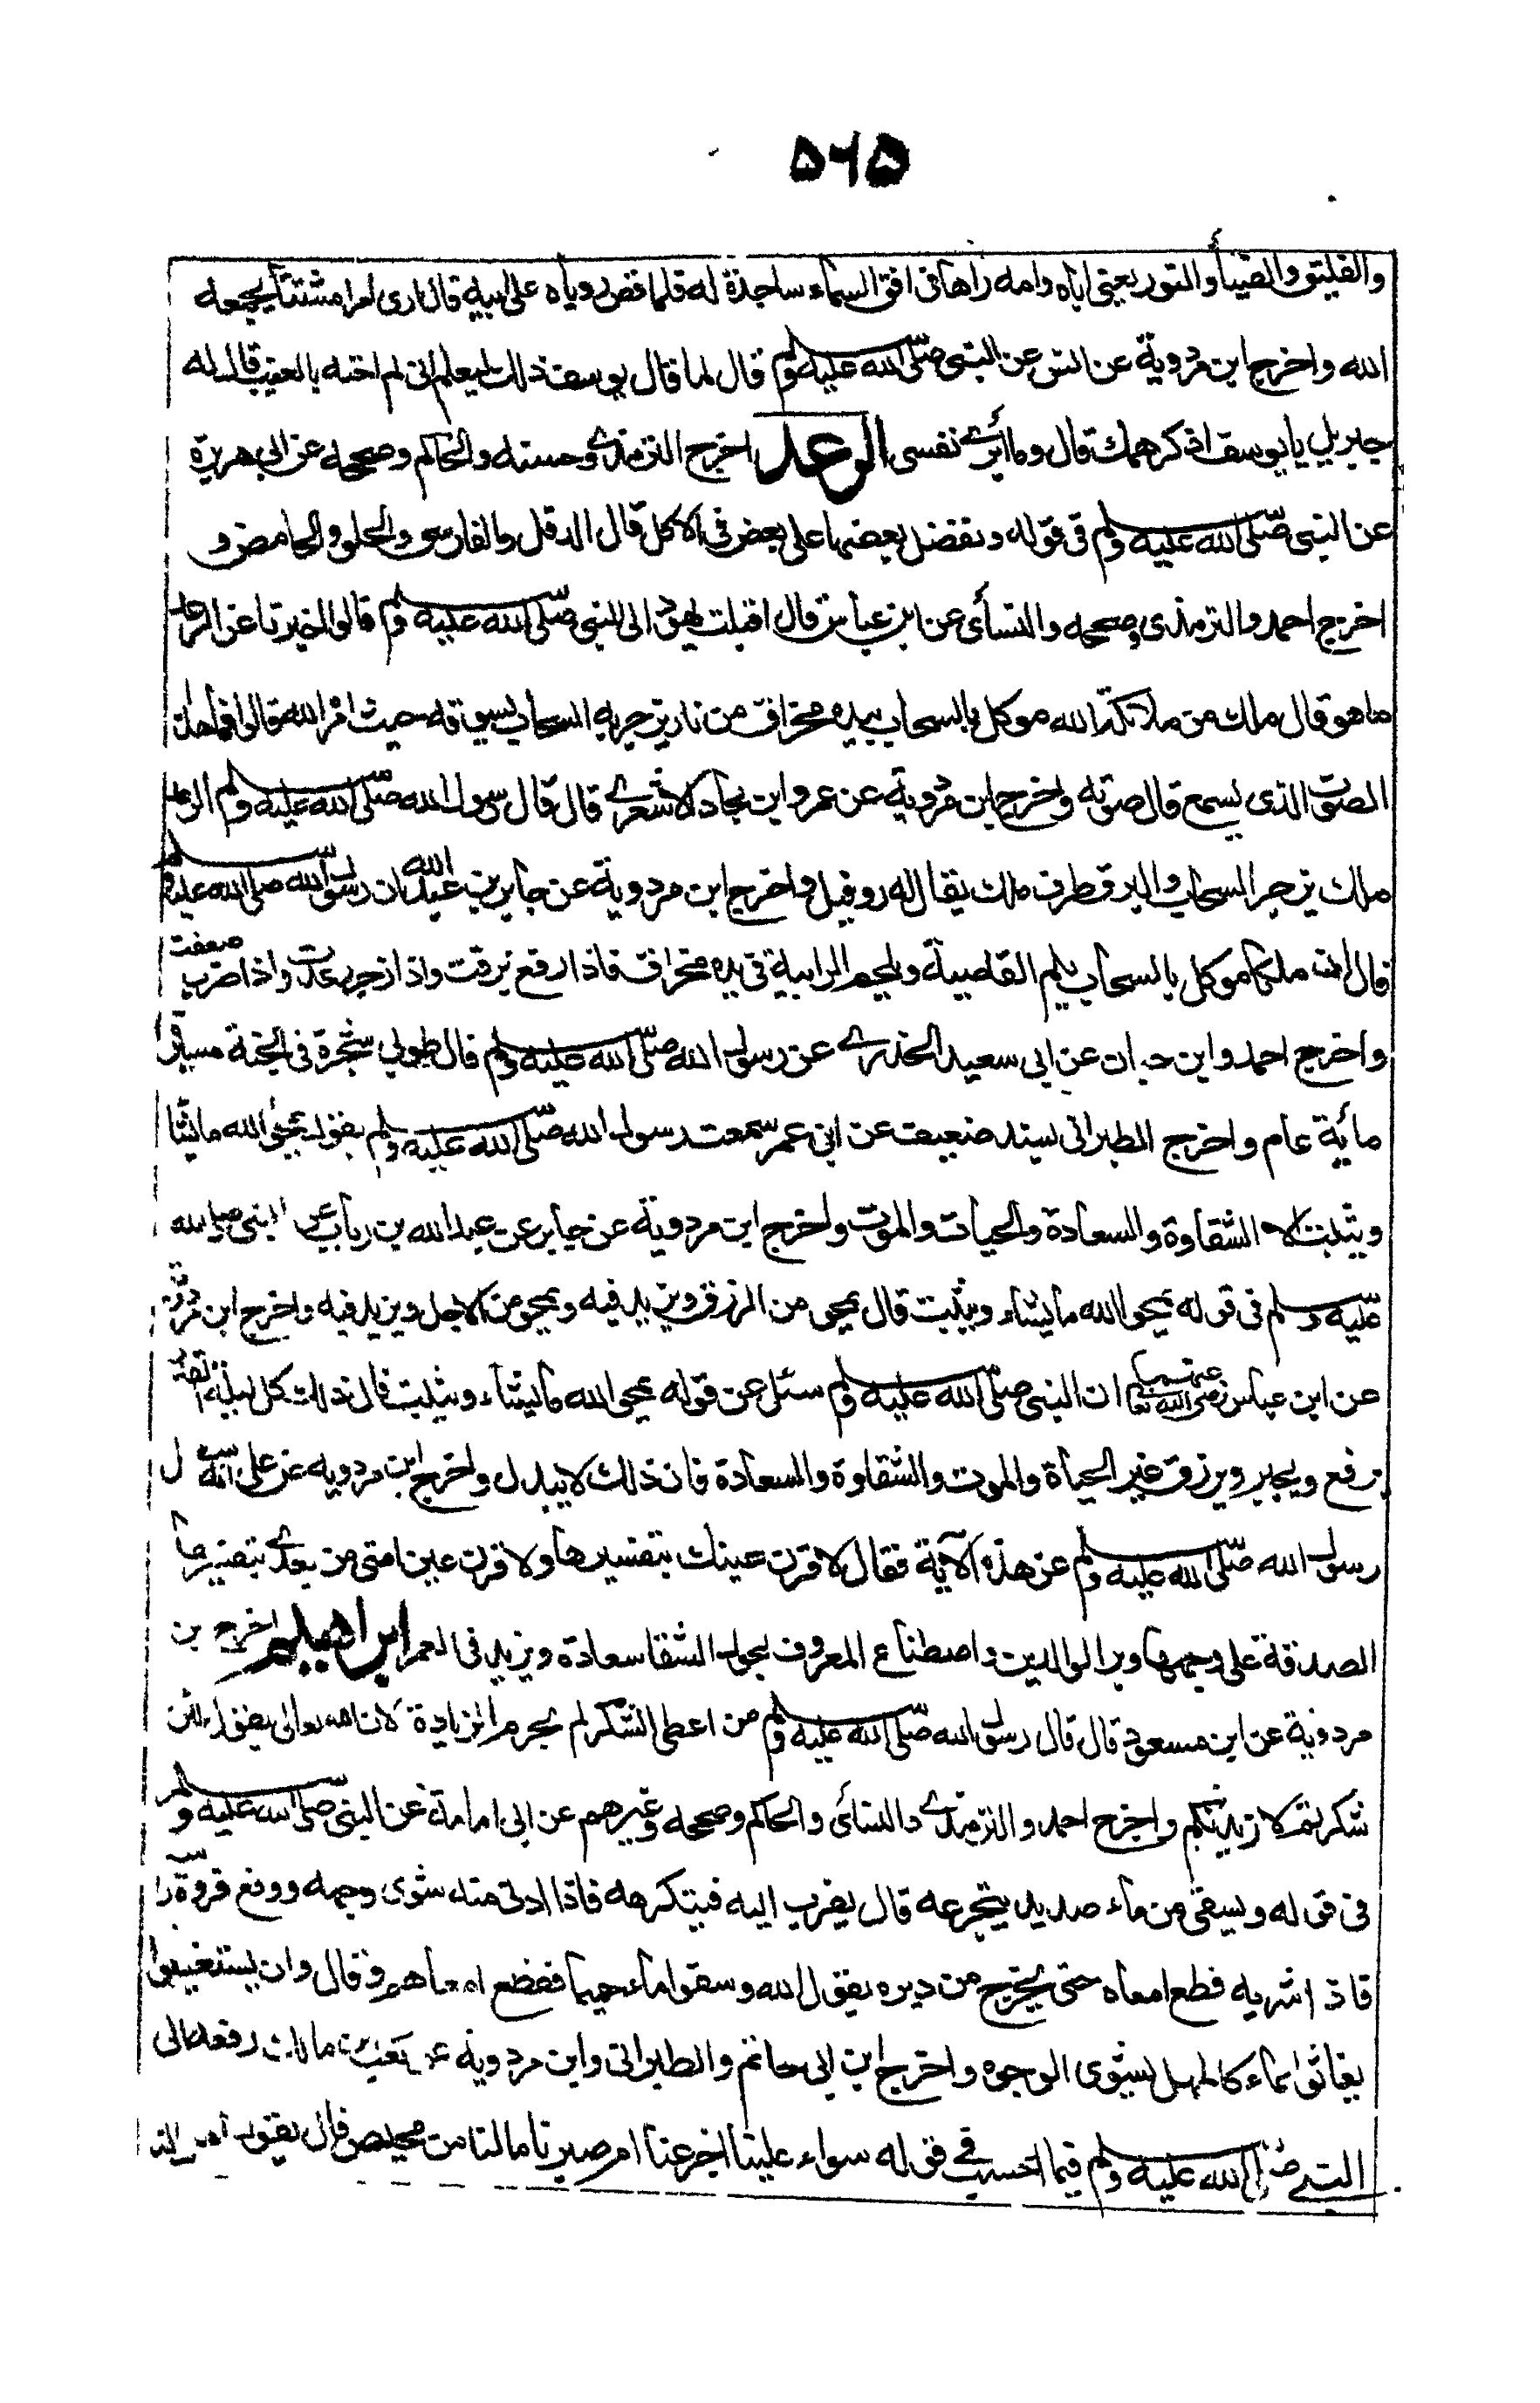 ۵۶۵
والفليق والضياء والنور يعنى اباه وامه راها فى افق السماء ساجدة له فلما قص روياه على ابيه قال ارى امرا مشتتا يجمعه
الله واخرج ابن مردوية عن انس عن النبى صلى الله عليه وسلم قال لما قال يوسف ذلك ليعلم انى لم اخنه بالغيب قال له
جبريل يا يوسف اذكر همك قال وما أبرى نفسى الرعد اخرج الترمذى وحسنه والحاكم وصححه عن ابى هريرة
عن النبى صلى الله عليه وسلم فى قوله ونفضل بعضها على بعض فى الاكل قال الدقل والفارسى والحلو والحامض و
اخرج احمد والترمذى وصححه والنسأى عن ابن عباس قال اقبلت يهود الى النبى صلى الله عليه وسلم قالوا اخبرنا عن الرعد
ما هو قال ملك من ملائكة الله موكل بالسحاب بيده مخراق من نار يزجر به السحاب يسوقه حيث امره الله قالوا فما هذا
الصوت الذى يسمع قال صوته واخرج ابن مردوية عن عمرو ابن بجاد الاشعرى قال قال رسول الله صلى الله عليه وسلم الرعد
ملك يزجر السحاب والبرق طرف ملك يقال له روفيل واخرج ابن مردوية عن جابر بن عبد الله ان رسول الله صلى الله عليه وسلم
قال ان ملكا موكل بالسحاب يلم القاصية ويلحم الرابية فى يده مخراق فاذا رفع برقت واذا زجر رعدت واذا ضرب صعقت
واخرج احمد وابن حبان عن ابى سعيد الخذرى عن رسول الله صلى الله عليه وسلم قال طوبى شجرة فى الجنة مسيرة
مائة عام واخرج الطبرانى بسند ضعيف عن ابن عمر سمعت رسول الله صلى الله عليه وسلم يقول يمحو الله ما يشا
ويثبت الا الشقاوة والسعادة والحيات والموت واخرج ابن مردوية عن جابر عن عبد الله بن رباب عن النبى صلى الله
عليه وسلم فى قوله يمحو الله ما يشاء ويثبت قال يمحى من الرزق ويزيد فيه ويمحو من الاجل ويزيد فيه واخرج ابن مردوية
عن ابن عباس رضى الله تعا عنهما ان النبى صلى الله عليه وسلم سئل عن قوله يمحى الله ما يشاء ويثبت قال ذلك كل ليلة القدر
يرفع ويجبر ويرزق غير الحيأة والموت والشقاوة والسعادة فان ذلك لا يبدل واخرج ابن مردويه عن على انه سئل
رسول الله صلى الله عليه وسلم عن هذه الآية فقال لاقرن عينك بتفسيرها ولاقرن عين امتى من بعدى بتفسيرها
الصدقة على وجهها وبر الوالدين واصطناع المعروف يحول الشقا سعادة ويزيد فى العمر ابراهيم اخرج بن
مردوية عن ابن مسعود قال قال رسول الله صلى الله عليه وسلم من اعطى الشكر لم يحرم الزيادة لان الله تعالى يقول لئن
شكرتم لازيدنكم واخرج احمد والترمذى والنسائى والحاكم وصححه وغيرهم عن ابى امامة عن النبى صلى الله عليه وسلم
فى قوله ويسقى من ماء صديد يتجرعه قال يقرب اليه فيتكرهه فاذا ادنى منه شوى وجهه ووقع فروة راسه
فاذا شربه قطع امعاه حتى يخرج من دبره يقول الله وسقوا ماء حميما فقطع امعاهم وقال وان يستغيثوا
يغاثوا بماء كالمهل يشوى الوجوه واخرج ابن ابى حاتم والطبرانى وابن مردوية عن كعب بن مالك رفعه الى
النبى صلى الله عليه وسلم فيما احسب فى قوله سواء علينا اجزعنا ام صبرنا ما لنا من محيص قال يقول اهل النا